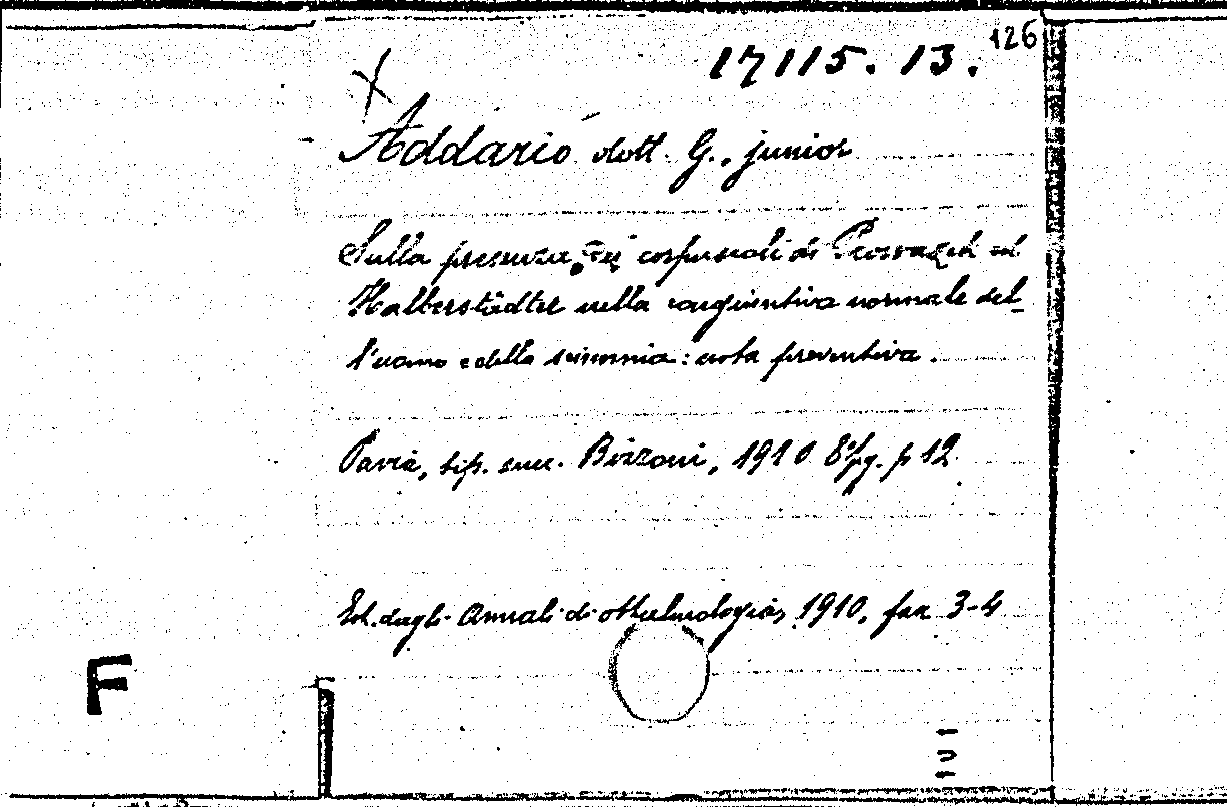 126
17115. 13.
X
Addario dott. G., junior
Sulla presenza dei corpuscoli di Prowazek ed
Halberstädter nella congiuntiva normale del-
l'uomo e della scimmia: nota preventiva.
Pavia, tip. succ. Bizzoni, 1910 8° fig. p 12
Est. dagli Annali di ottalmologia, 1910, fax 3-4
F